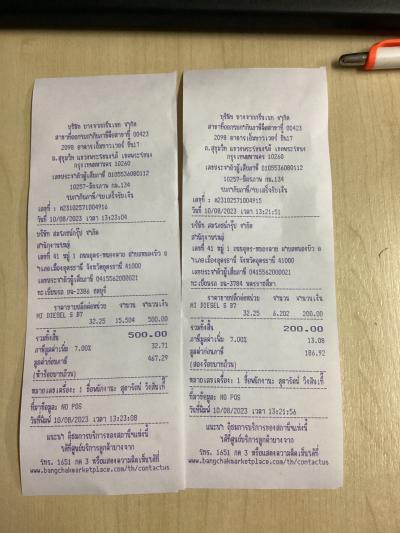 บริษัท บางจากกรีนเนท จำกัด
สาขาที่ออกใบกำกับภาษีคือสาขาที่ 00423
2098 อาคารเอ็มทาวเวอร์ ชั้น7
ถ.สุขุมวิท แขวงพระโขนงใต้ เขตพระโขนง
กรุงเทพมหานคร 10260
เลขประจำตัวผู้เสียภาษี 0105536080112
10257-มิตรภาพ กม.134
ใบกำกับภาษี/ใบเสร็จรับเงิน
เลขที่ : A23102571004916
วันที่ 10/08/2023 เวลา 13:23:04
สำนักงานใหญ่
เลขที่ 41 หมู่ 1 ถนนอุดร-หนองคาย
จังหวัดอุดรธานี 41000
เลขประจำตัวผู้เสียภาษี 0415562000021
ราคาขายปลีกต่อหน่วย จำนวน จำนวนเงิน
HI DIESEL S B7
32.25 15.504 500.00
รวมทั้งสิ้น 500.00
ภาษีมูลค่าเพิ่ม 7.00% 32.71
มูลค่าก่อนภาษี 467.29
(ห้าร้อยบาทถ้วน)
หมายเลขเครื่อง: 1 ชื่อพนักงาน: สุดารัตน์
ที่มาข้อมูล: NO POS
วันที่พิมพ์ 10/08/2023 เวลา 13:23:08
แนะนำ ติชมการบริการของสถานีแห่งนี้
ได้ที่ศูนย์บริการลูกค้าบางจาก
โทร. 1651 กด 3 หรือแสดงความคิดเห็นได้ที่
www.bangchakmarketplace.com/th/contactus
บริษัท บางจากกรีนเนท จำกัด
สาขาที่ออกใบกำกับภาษีคือสาขาที่ 00423
2098 อาคารเอ็มทาวเวอร์ ชั้น7
ถ.สุขุมวิท แขวงพระโขนงใต้ เขตพระโขนง
กรุงเทพมหานคร 10260
เลขประจำตัวผู้เสียภาษี 0105536080112
10257-มิตรภาพ กม.134
ใบกำกับภาษี/ใบเสร็จรับเงิน
เลขที่ : A23102571004915
วันที่ 10/08/2023 เวลา 13:21:51
สำนักงานใหญ่
เลขที่ 41 หมู่ 1 ถนนอุดร-หนองคาย
จังหวัดอุดรธานี 41000
เลขประจำตัวผู้เสียภาษี 0415562000021
ทะเบียนรถ นครราชสีมา
ราคาขายปลีกต่อหน่วย จำนวน จำนวนเงิน
HI DIESEL S B7
32.25 6.202 200.00
รวมทั้งสิ้น 200.00
ภาษีมูลค่าเพิ่ม 7.00% 13.08
มูลค่าก่อนภาษี 186.92
(สองร้อยบาทถ้วน)
หมายเลขเครื่อง: 1 ชื่อพนักงาน: สุดารัตน์
ที่มาข้อมูล: NO POS
วันที่พิมพ์ 10/08/2023 เวลา 13:21:56
แนะนำ ติชมการบริการของสถานีแห่งนี้
ได้ที่ศูนย์บริการลูกค้าบางจาก
โทร. 1651 กด 3 หรือแสดงความคิดเห็นได้ที่
www.bangchakmarketplace.com/th/contactus